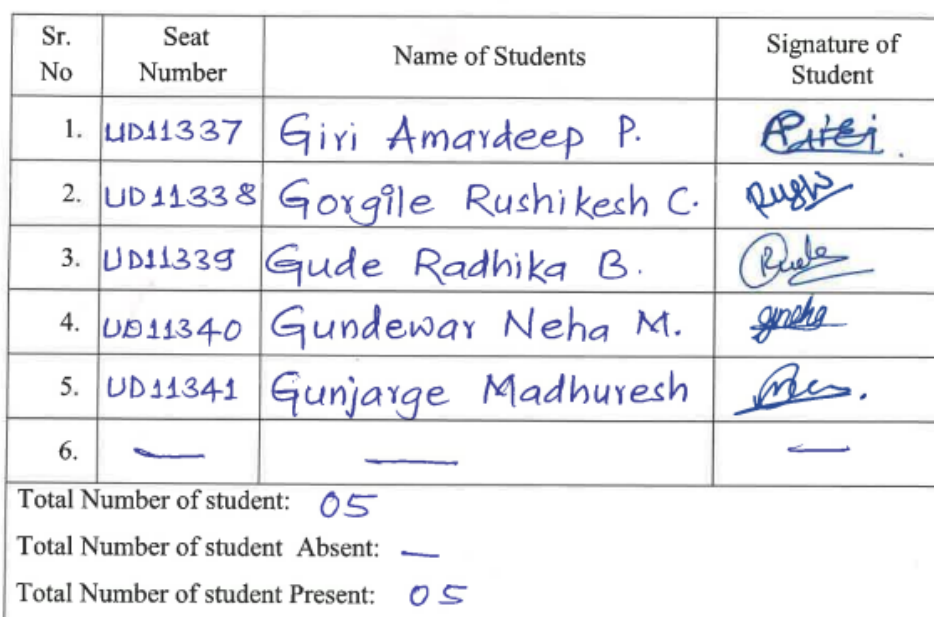 Sr. No Seat Number Name of Students Signature of Student
1. UD11337 Giri Amardeep P.
2. UD11338 Gorgile Rushikesh C.
3. UD11339 Gude Radhika B.
4. UD11340 Gundewar Neha M.
5. UD11341 Gunjarge Madhuresh
6. — — —
Total Number of student: 05
Total Number of student Absent: —
Total Number of student Present: 05